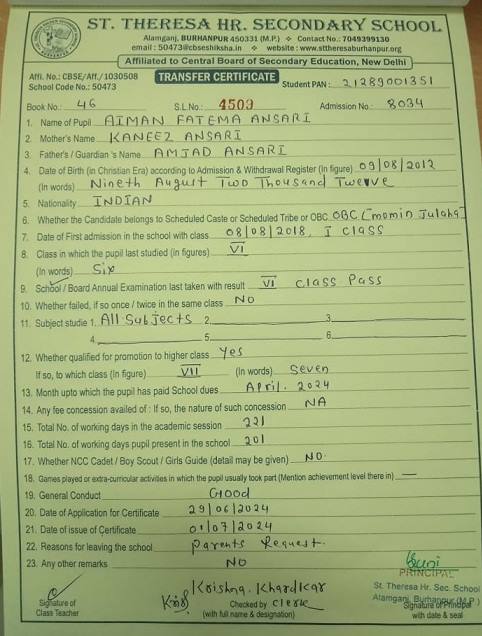 ST. THERESA HR. SECONDARY SCHOOL
Alamganj, BURHANPUR 450331 (M.P.) ❖ Contact No.: 7049399130
email : 50473@cbseshiksha.in ❖ website : www.sttheresaburhanpur.org
Affiliated to Central Board of Secondary Education, New Delhi
Affi. No.: CBSE/Aff./1030508 TRANSFER CERTIFICATE
School Code No.: 50473 Student PAN : 21289001351
Book No.: 46 S.L No.: 4509 Admission No.: 8034
1. Name of Pupil AIMAN FATEMA ANSARI
2. Mother's Name KANEEZ ANSARI
3. Father's / Guardian 's Name AMJAD ANSARI
4. Date of Birth (in Christian Era) according to Admission & Withdrawal Register (in figure) 09/08/2012
(In words) Nineth August Two Thousand Twelve
5. Nationality INDIAN
6. Whether the Candidate belongs to Scheduled Caste or Scheduled Tribe or OBC OBC [momin Julaha]
7. Date of First admission in the school with class 08/08/2018, I class
8. Class in which the pupil last studied (in figures) VI
(In words) Six
9. School / Board Annual Examination last taken with result VI class Pass
10. Whether failed, if so once / twice in the same class NO
11. Subject studie 1. All Subjects 2. 3.
4. 5. 6.
12. Whether qualified for promotion to higher class Yes
If so, to which class (In figure) VII (In words) Seven
13. Month upto which the pupil has paid School dues April. 2024
14. Any fee concession availed of : If so, the nature of such concession NA
15. Total No. of working days in the academic session 221
16. Total No. of working days pupil present in the school 201
17. Whether NCC Cadet / Boy Scout / Girls Guide (detail may be given) NO.
18. Games played or extra-curricular activities in which the pupil usually took part (Mention achievement level there in) —
19. General Conduct Good
20. Date of Application for Certificate 29/06/2024
21. Date of issue of Certificate 01/07/2024
22. Reasons for leaving the school Parents Request.
23. Any other remarks NO
PRINCIPAL
Krishna. Khardikar St. Theresa Hr. Sec. School
Alamganj, Burhanpur (M.P.)
Signature of Checked by Clerk Signature of Principal
Class Teacher (with full name & designation) with date & seal